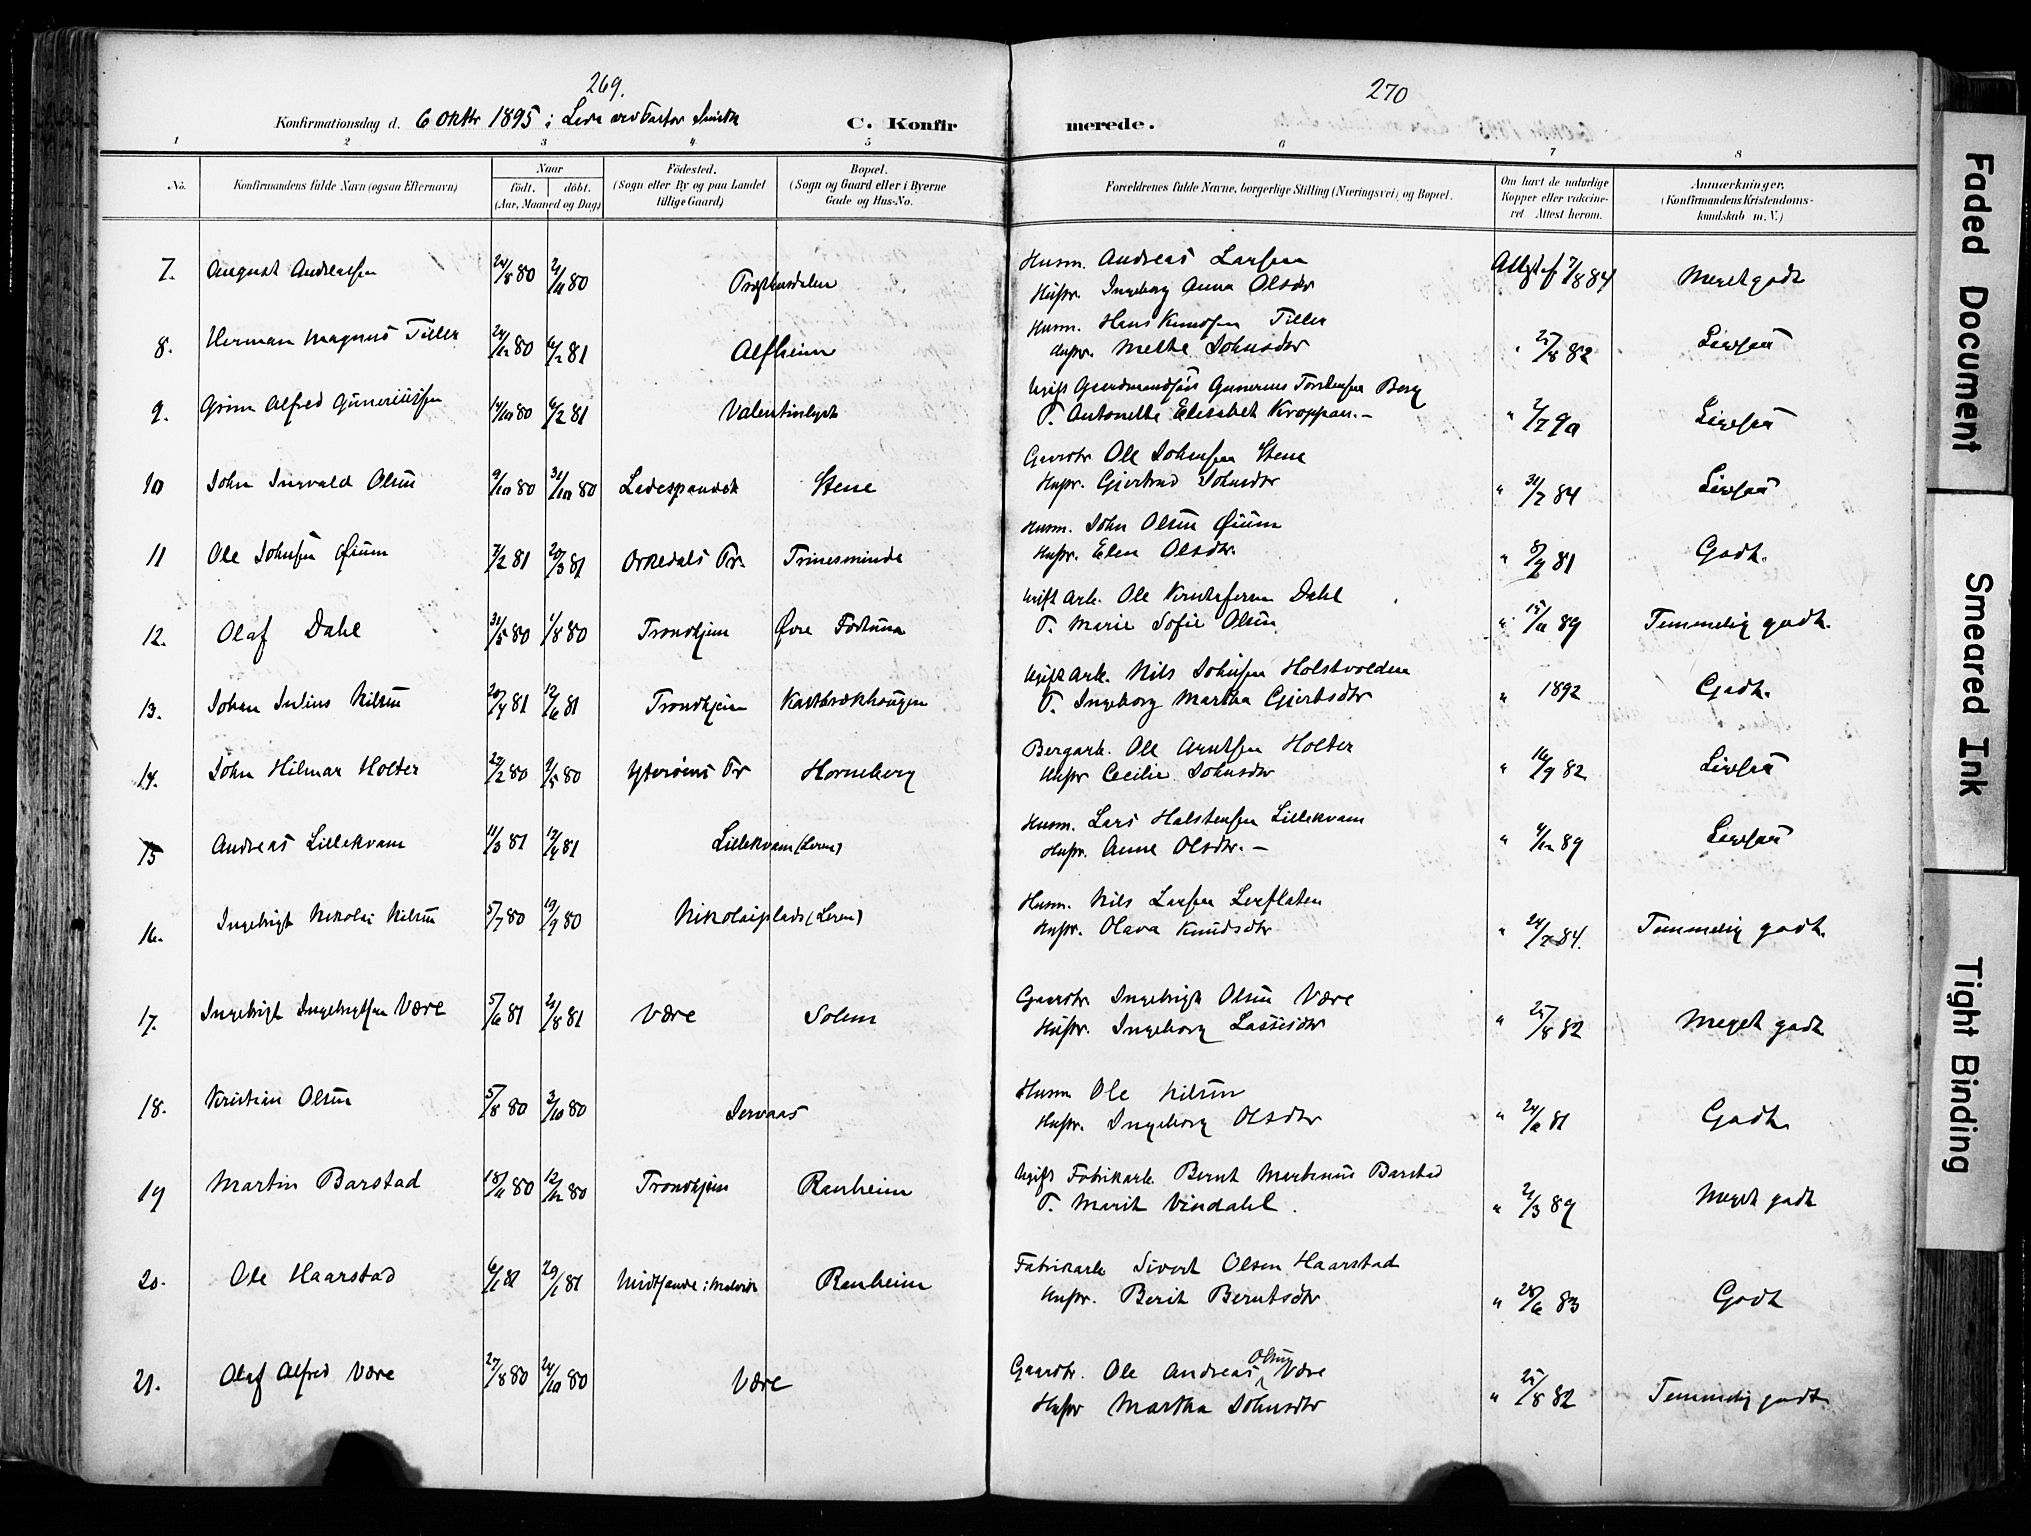 269.
270
Konfirmationsdag d. 6 Oktbr 1895 i Lade ved Pastor
C. Konfir
merede.
1 2 3 4 5 6 7 8
No.
Konfirmandens fulde Navn (ogsaa Efternavn)
Naar
født. døbt.
(Aar, Maaned og Dag)
Fødested.
(Sogn eller By og paa Landet
tillige Gaard)
Bopæl.
(Sogn og Gaard eller i Byerne
Gade og Hus-No.
Forældrenes fulde Navne, borgerlige Stilling (Næringsvei) og Bopæl.
Om havt de naturlige
Kopper eller vakcine-
ret Attest herom.
Anmærkninger.
(Konfirmandens Kristendoms-
kundskab m. V.)
7. August Andreassen 80 80
Husm. Andreas Larsen
Hustr. Ingeborg Anna Olsdtr
7/8 84 Meget godt
8. Herman Magnus Tiller 80 81 Alfheim
Husm. Hans Knudsen Tiller
Hustr. Mette Johnsdtr
" 25/8 82 Ligesaa
9. Alfred Guneriussen 80 81
Ugift Gunerius Torstensen Berg
P. Antonette Elisabet Kroppan.–
" 90 Ligesaa
10 John Ingvald Olsen 9/10 80 31/10 80 Stene
Gaardbr Ole Johnsen Stene
Hustr. Gjertrud Johnsdtr
" 31/7 84 Ligesaa
11 Ole Johnsen Øium 7/2 81 20/3 81 Orkedals Pr. Trinesminde
Husm. John Olsen Øium
Hustr. Elen Olsdtr.
" 81 Godt.
12. Olaf Dahl 31/5 80 1/8 80 Trondhjem Øvre Fortuna
Ugift Arb. Ole Dahl
P. Marie Sofie Olsen
" 89 Temmelig godt.
13. Johan Julius Nilsen 20/4 81 12/6 81 Trondhjem
Ugift Arb. Nils Johnsen Holstvolden
P. Ingeborg Martha
" 1892 Godt.
14. John Hilmar Holter 80 9/5 80 Ytterøens Pr Horneberg
Bergarb. Ole Arntsen Holter
Hustr Cecilie Johnsdtr
" 16/9 82 Ligesaa
15 Andreas Lillekvam 11/3 81 81 Lillekvam (Leren)
Husm. Lars Halstensen Lillekvam
Hustr. Anne Olsdtr.–
" 89 Ligesaa
16. Ingebrigt Nikolai Nilsen 5/7 80 19/9 80 Nikolaiplads (Leren)
Husm. Nils Larsen Lerflaten
Hustr. Olava Knudsdtr
" 24/7 84. Temmelig godt.
17. Ingebrigt Ingebrigtsen Være 5/6 81 21/8 81 Være Solem
Gaardbr. Ingebrigt Olsen Være
Hustr. Ingeborg Lassesdtr
" 25/8 82 Meget godt
18. Kristian Olsen 5/8 80 3/10 80
Husm Ole Nilsen
Hustr. Ingeborg Olsdtr
" 81 Godt
19 Martin Barstad 80 12/12 80 Trondhjem Ranheim
Ugift Fabrikarb. Bernt Martinus Barstad
P. Marit Vindahl.
" 21/3 89 Meget godt
20. Ole Haarstad 6/1 81 81 i Malvik Ranheim
Fabrikarb Sivert Olsen Haarstad
Hustr. Berit Berntsdtr
" 28/6 83 Godt
21. Olaf Alfred Være 27/8 80 24/10 80 Være
Gaardbr. Ole Andreas Olsen Være
Hustr Martha Johnsdtr
" 25/8 82 Temmelig godt
Faded Document
Smeared Ink
Tight Binding